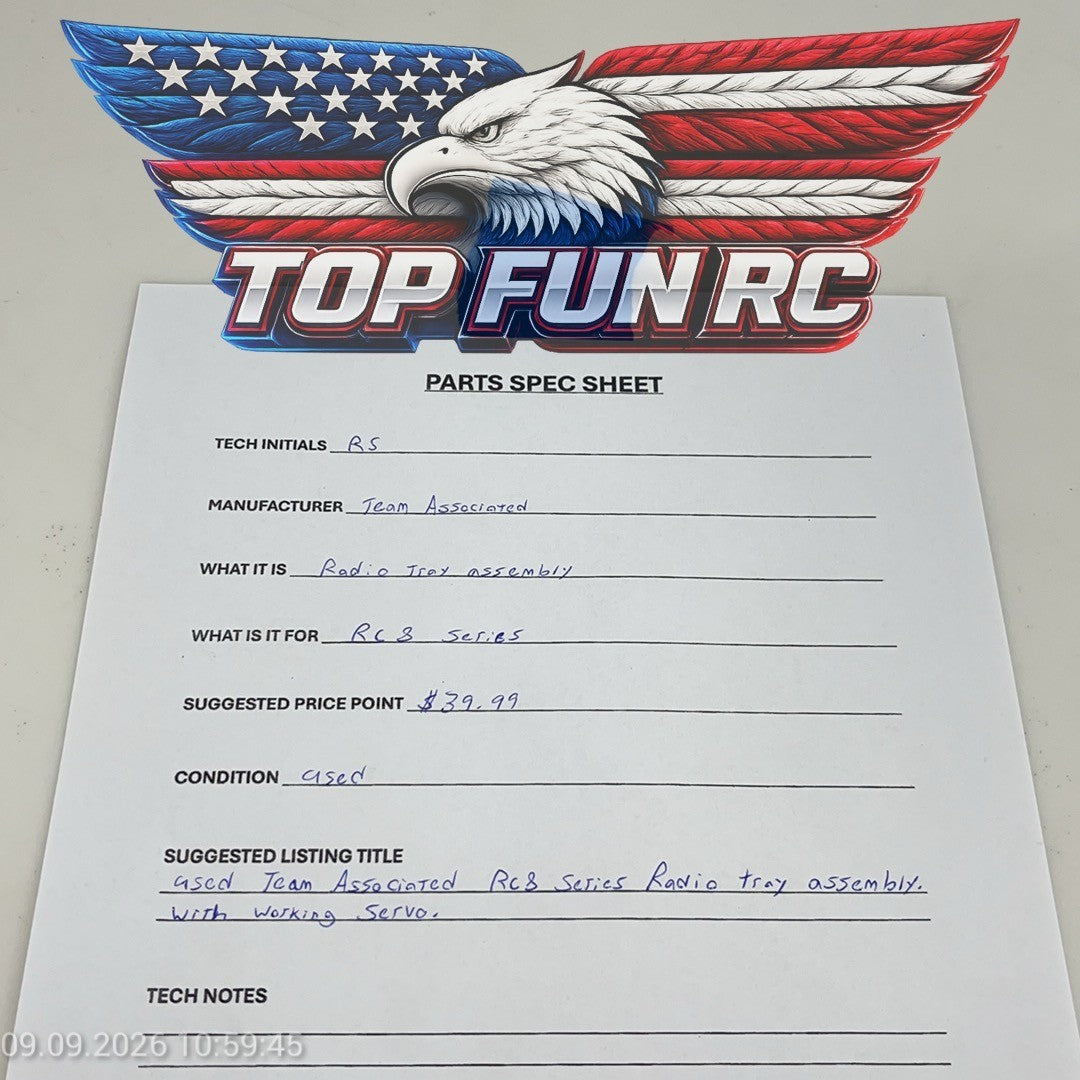 TOP FUN RC
PARTS SPEC SHEET
TECH INITIALS RS
MANUFACTURER Team Associated
WHAT IT IS Radio tray assembly
WHAT IS IT FOR RC8 Series
SUGGESTED PRICE POINT $39.99
CONDITION used
SUGGESTED LISTING TITLE
used Team Associated RC8 Series Radio tray assembly.
with working servo.
TECH NOTES
09.09.2026 10:59:45